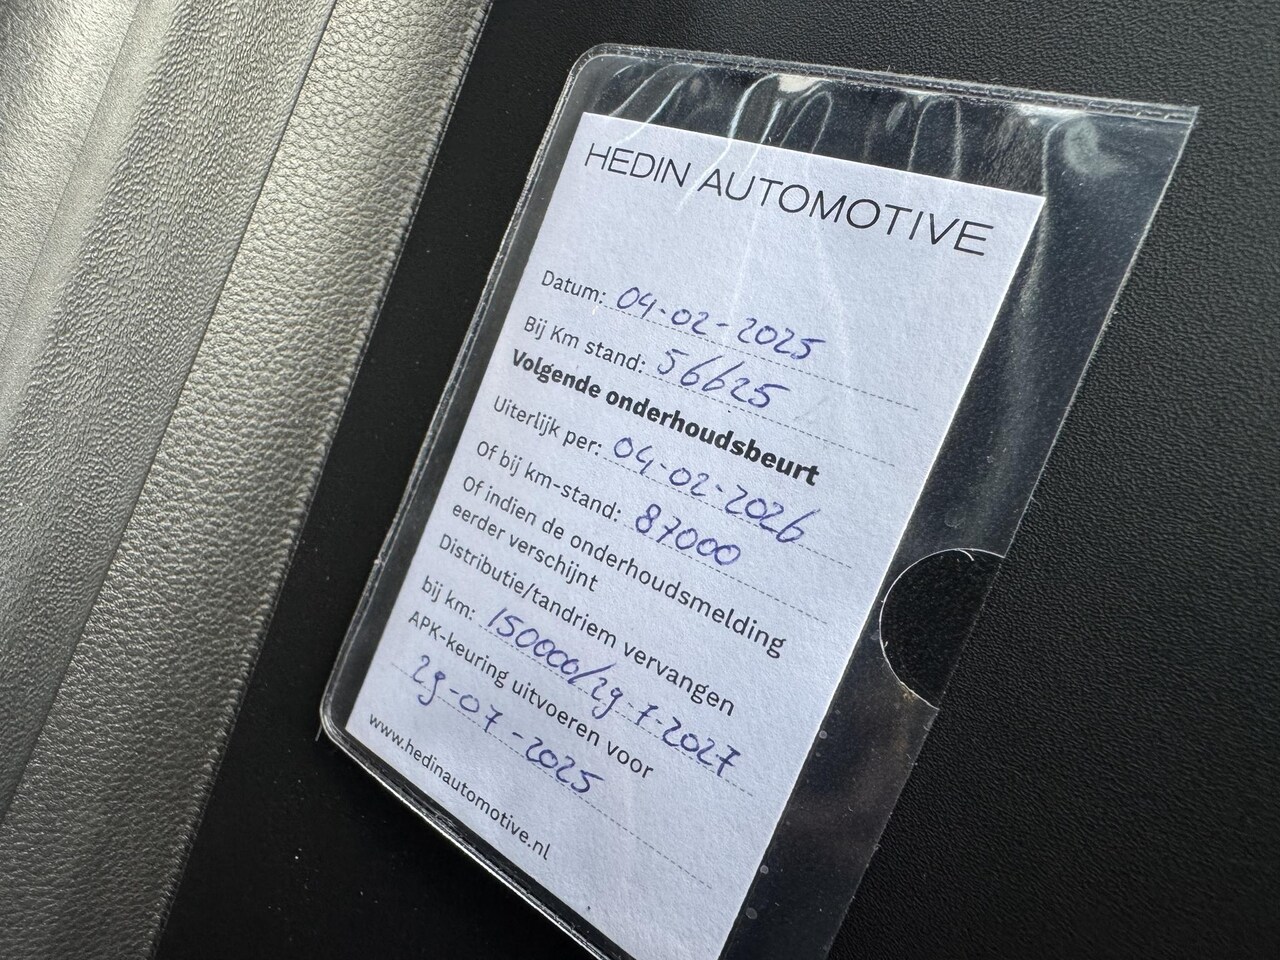 HEDIN AUTOMOTIVE
Datum: 04-02-2025
Bij Km stand: 56625
Volgende onderhoudsbeurt
Uiterlijk per: 04-02-2026
Of bij km-stand: 87000
Of indien de onderhoudsmelding
eerder verschijnt
Distributie/tandriem vervangen
bij km: 150000/29-7-2027
APK-keuring uitvoeren voor
29-07-2025
www.hedinautomotive.nl